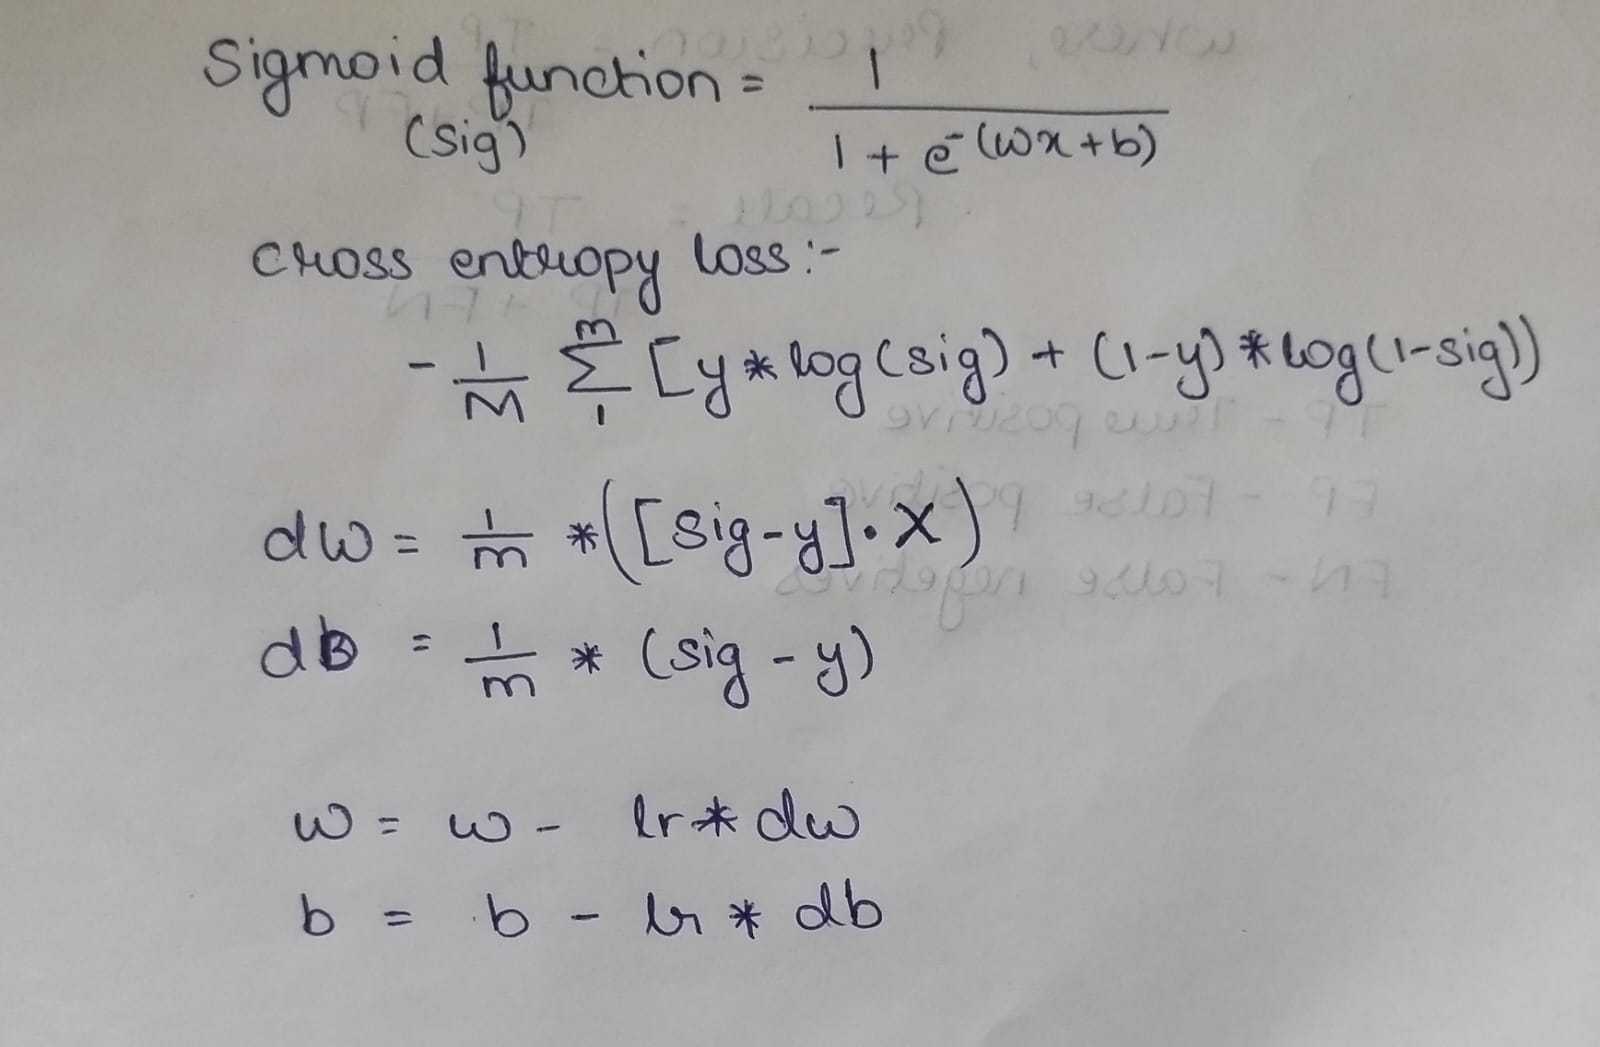 Sigmoid function = 1 / 1 + e^-(wx+b)
(sig)
cross entropy loss :-
- 1/M Σ_1^m [y * log(sig) + (1-y) * log(1-sig))
dw = 1/m * ([sig-y]·X)
db = 1/m * (sig - y)
w = w - lr * dw
b = b - lr * db